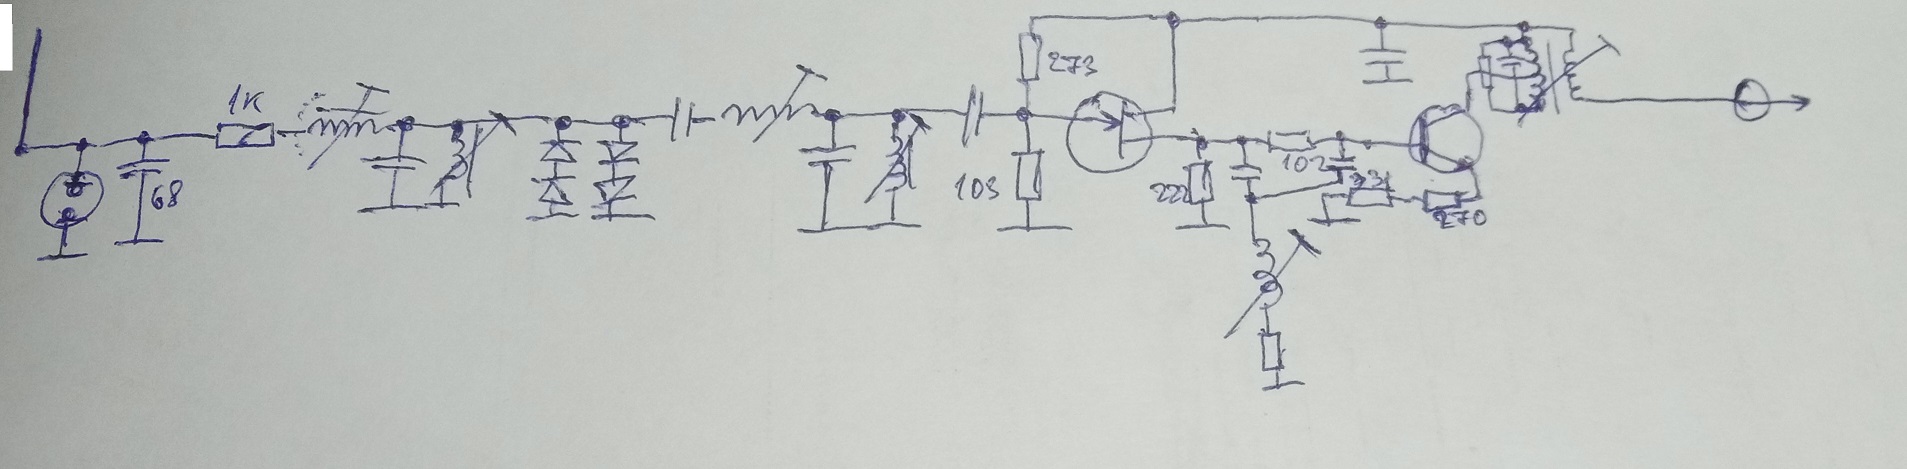 1K
68
273
103
222
102
331
270